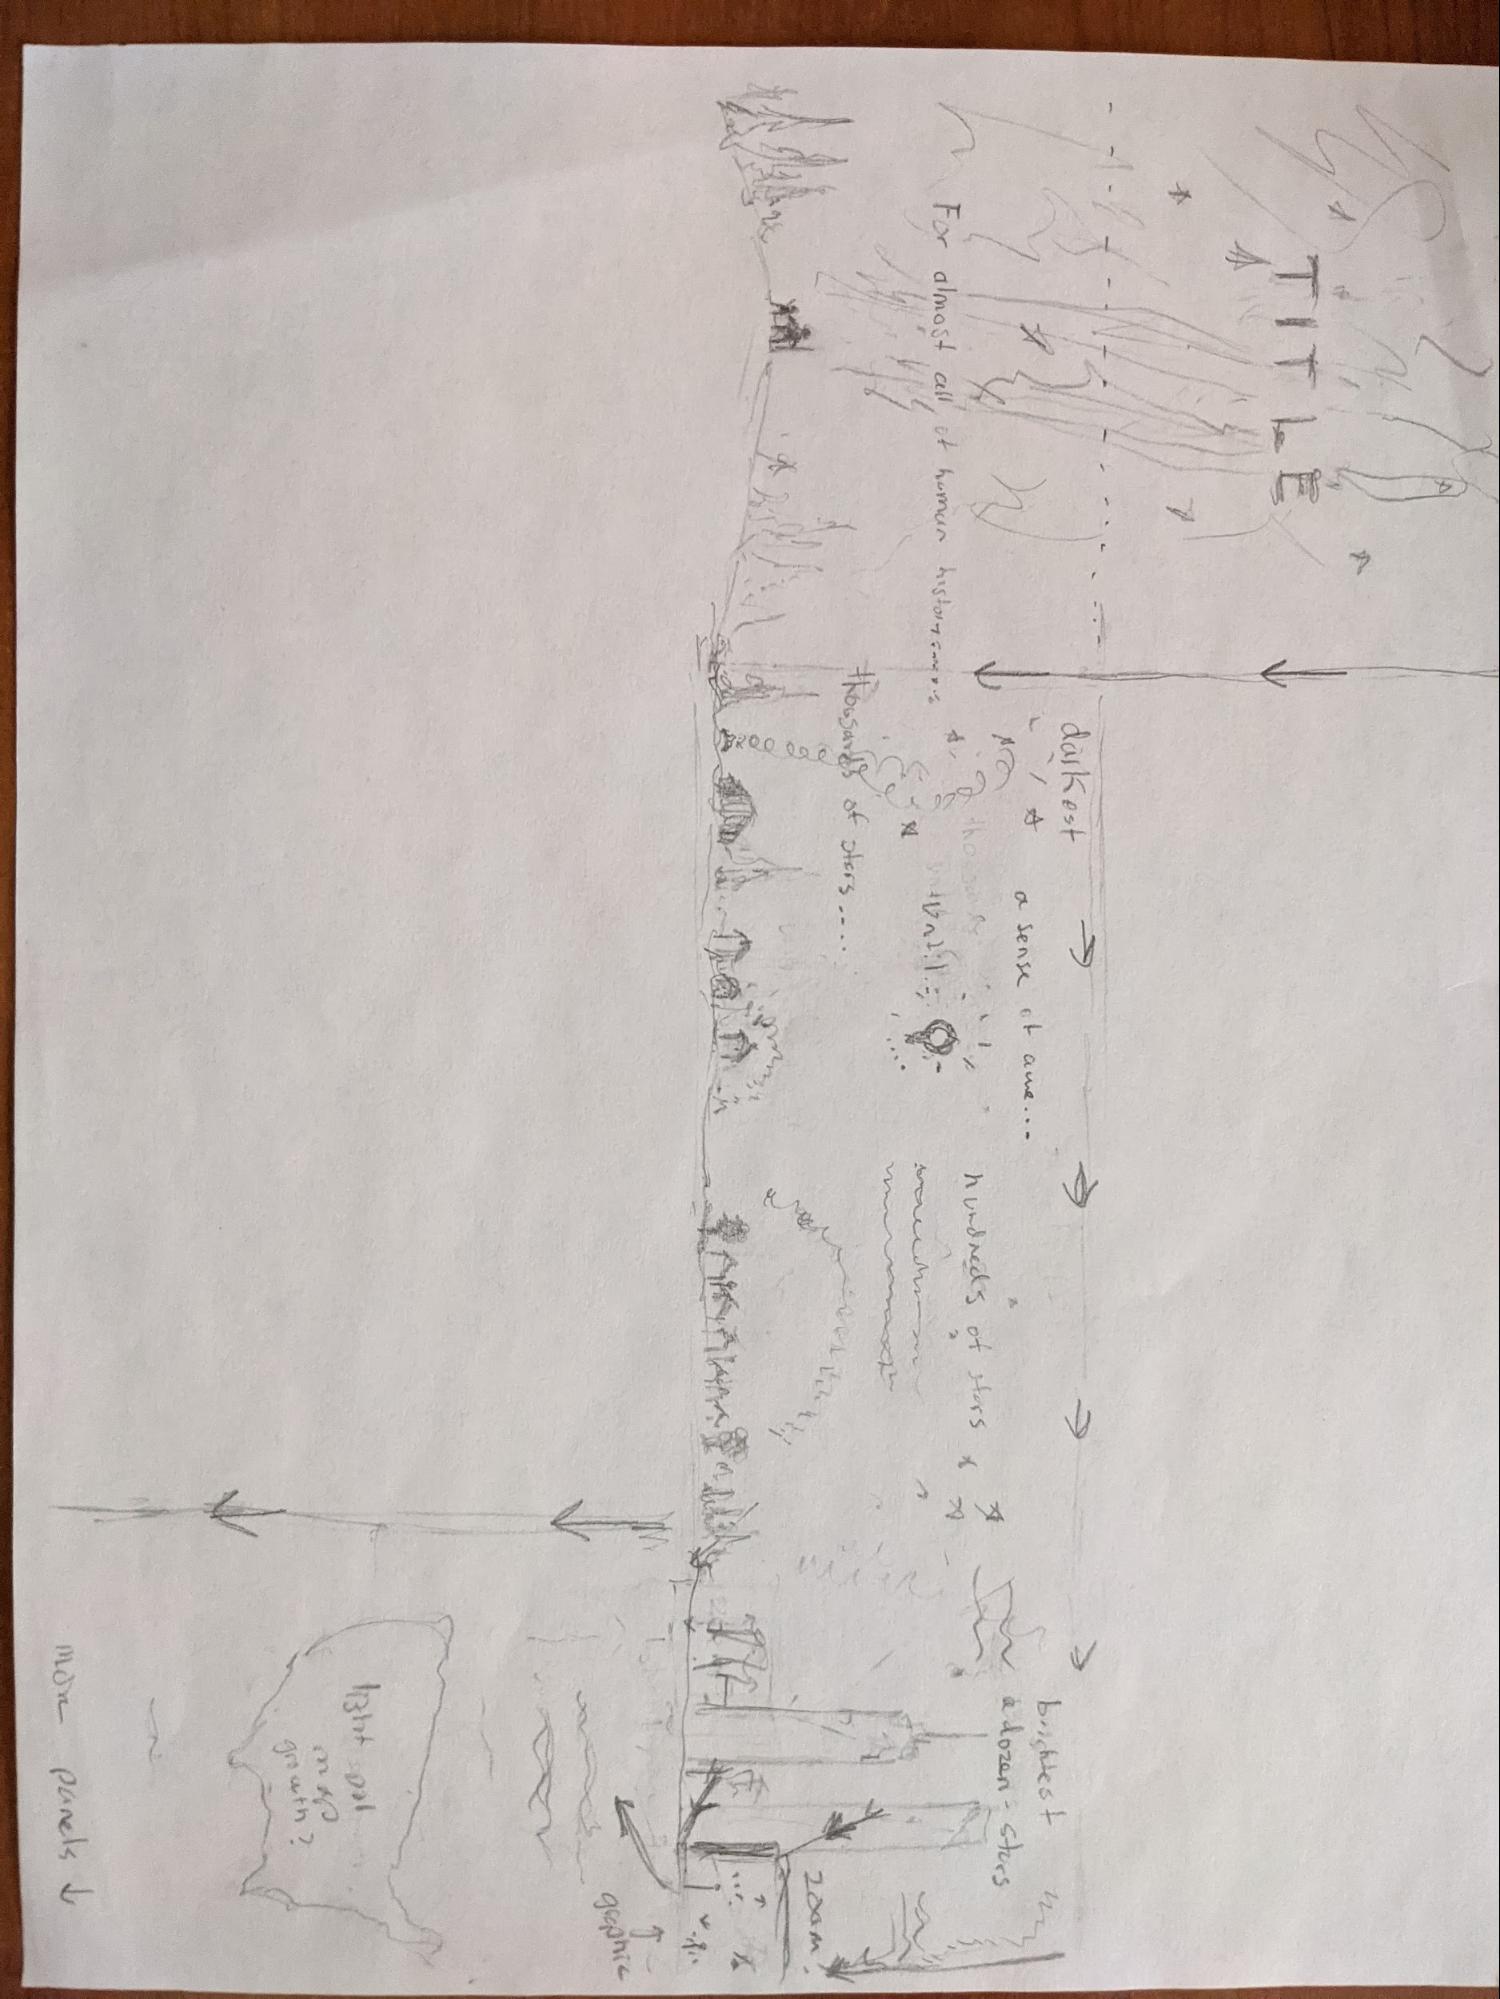 TITLE
For almost all of human history.......
darkest
a sense of awe...
thousands of stars.....
until...
hundreds of stars
brightest
a dozen stars
zoom.
graphic
light pol
map
growth?
more panels ↓